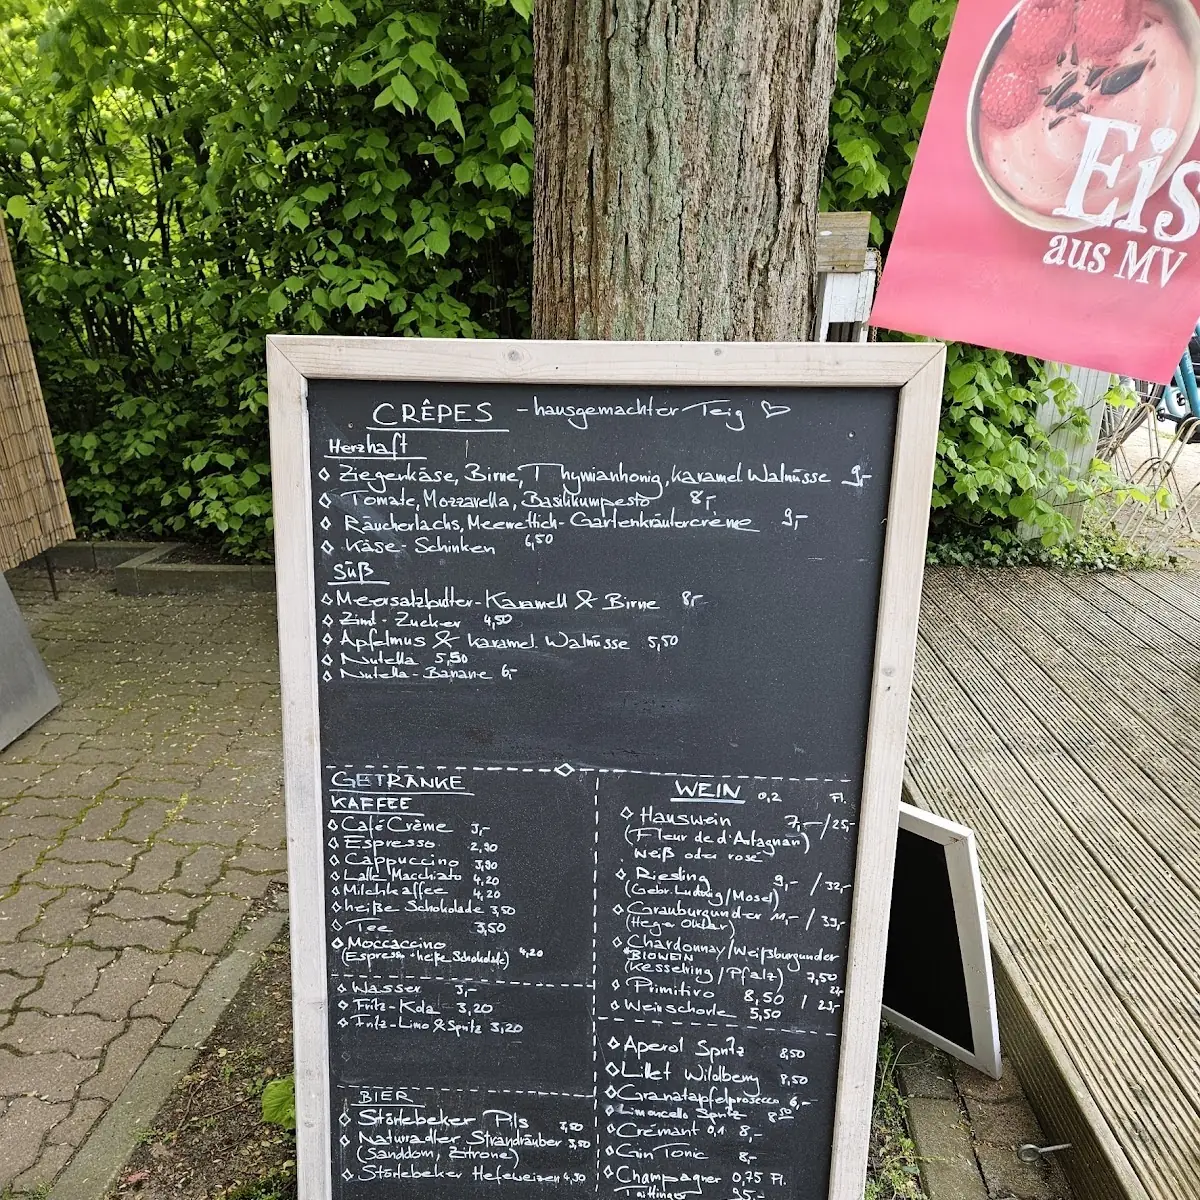 Eis
aus MV
CRÊPES - hausgemachter Teig ♡
Herzhaft
◇ Ziegenkäse, Birne, Thymianhonig, Karamel Walnüsse 9,-
◇ Tomate, Mozzarella, Basilikumpesto 8,-
◇ Räucherlachs, Meerrettich-Gartenkräutercrème 9,-
◇ Käse-Schinken 6,50
Süß
◇ Meersalzbutter-Karamell & Birne 8,-
◇ Zimt-Zucker 4,50
◇ Apfelmus & Karamel Walnüsse 5,50
◇ Nutella 5,50
◇ Nutella-Banane 6,-
GETRÄNKE
KAFFEE
◇ Café Crème 3,-
◇ Espresso 2,90
◇ Cappuccino 3,90
◇ Latte Macchiato 4,20
◇ Milchkaffee 4,20
◇ heiße Schokolade 3,50
◇ Tee 3,50
◇ Moccaccino
(Espresso + heiße Schokolade) 4,20
◇ Wasser 3,-
◇ Fritz-Kola 3,20
◇ Fritz-Limo & Spritz 3,20
BIER
◇ Störtebeker Pils 3,50
◇ Naturradler Strandräuber 3,50
(Sanddorn, Zitrone)
◇ Störtebeker Hefeweizen 4,50
WEIN 0,2 Fl.
◇ Hauswein 7,- / 25,-
(Fleur de d'Artagnan)
weiß oder rosé
◇ Riesling 9,- / 32,-
(Gebr. Ludwig/Mosel)
◇ Grauburgunder 11,- / 39,-
◇ Chardonnay/Weißburgunder
BIOWEIN
(Kesselring/Pfalz) 7,50
◇ Primitivo 8,50 / 29,-
◇ Weinschorle 5,50
◇ Aperol Spritz 8,50
◇ Lillet Wildberry 8,50
◇ Granatapfelprosecco 6,-
◇ Limoncello Spritz 8,50
◇ Crémant 0,1 8,-
◇ Gin Tonic 8,-
◇ Champagner 0,75 Fl.
Taittinger 95,-